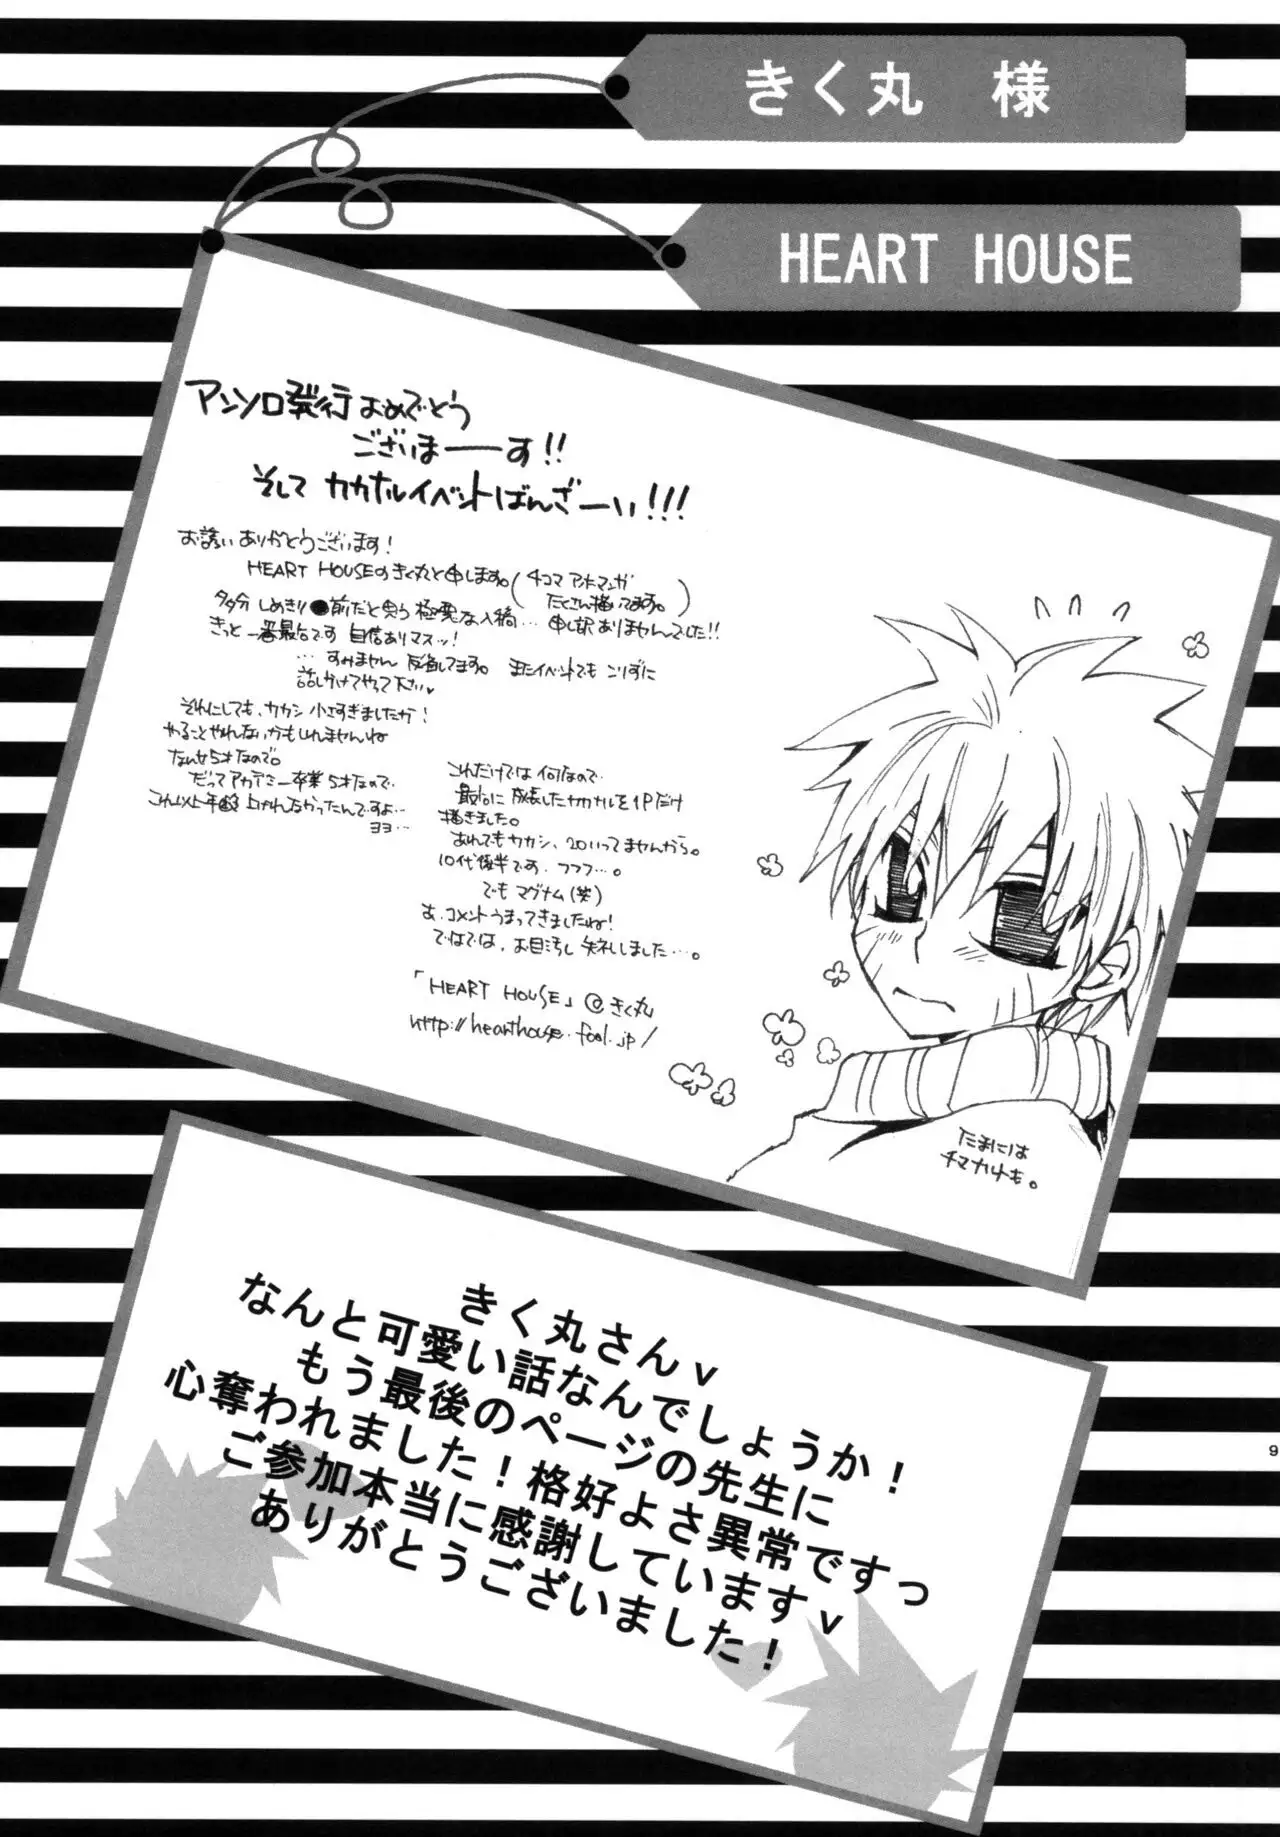 きく丸　様
HEART HOUSE
アンソロ発行おめでとう
ございまーーす!!
そして カカナルイベントばんざーい!!!
お誘いありがとうございます!
HEART HOUSEのきく丸と申します。(4コマ アンド マンガ
たくさん描いてます。)
多分 しめきり●前だと思う 極悪な入稿… 申し訳ありませんでした!!
きっと 一番最后です 自信ありマスッ!
…すみません 反省してます。 またイベントでも こりずに
話しかけてやって下さい♥
それにしても、カカシ 小さすぎましたか!
やることやれないかもしれませんね
なんせ5才なので。
だってアカデミー卒業 5才なので…
これ以上年 上がれなかったんですよ…
ヨヨ…
これだけでは 何なので
最后に 成長したカカナルを1Pだけ
描きました。
あれでも カカシ、20いってませんから。
10代後半です、フフフ…。
でも マグナム(笑)
あ、コメントうまってきましたね!
ではでは、お目汚し 失礼しました…。
「HEART HOUSE」@きく丸
http://hearthouse.fool.jp/
たまには
チマカルも。
きく丸さんｖ
なんと可愛い話なんでしょうか！
もう最後のページの先生に
心奪われました！格好よさ異常ですっ
ご参加本当に感謝していますｖ
ありがとうございました！
9